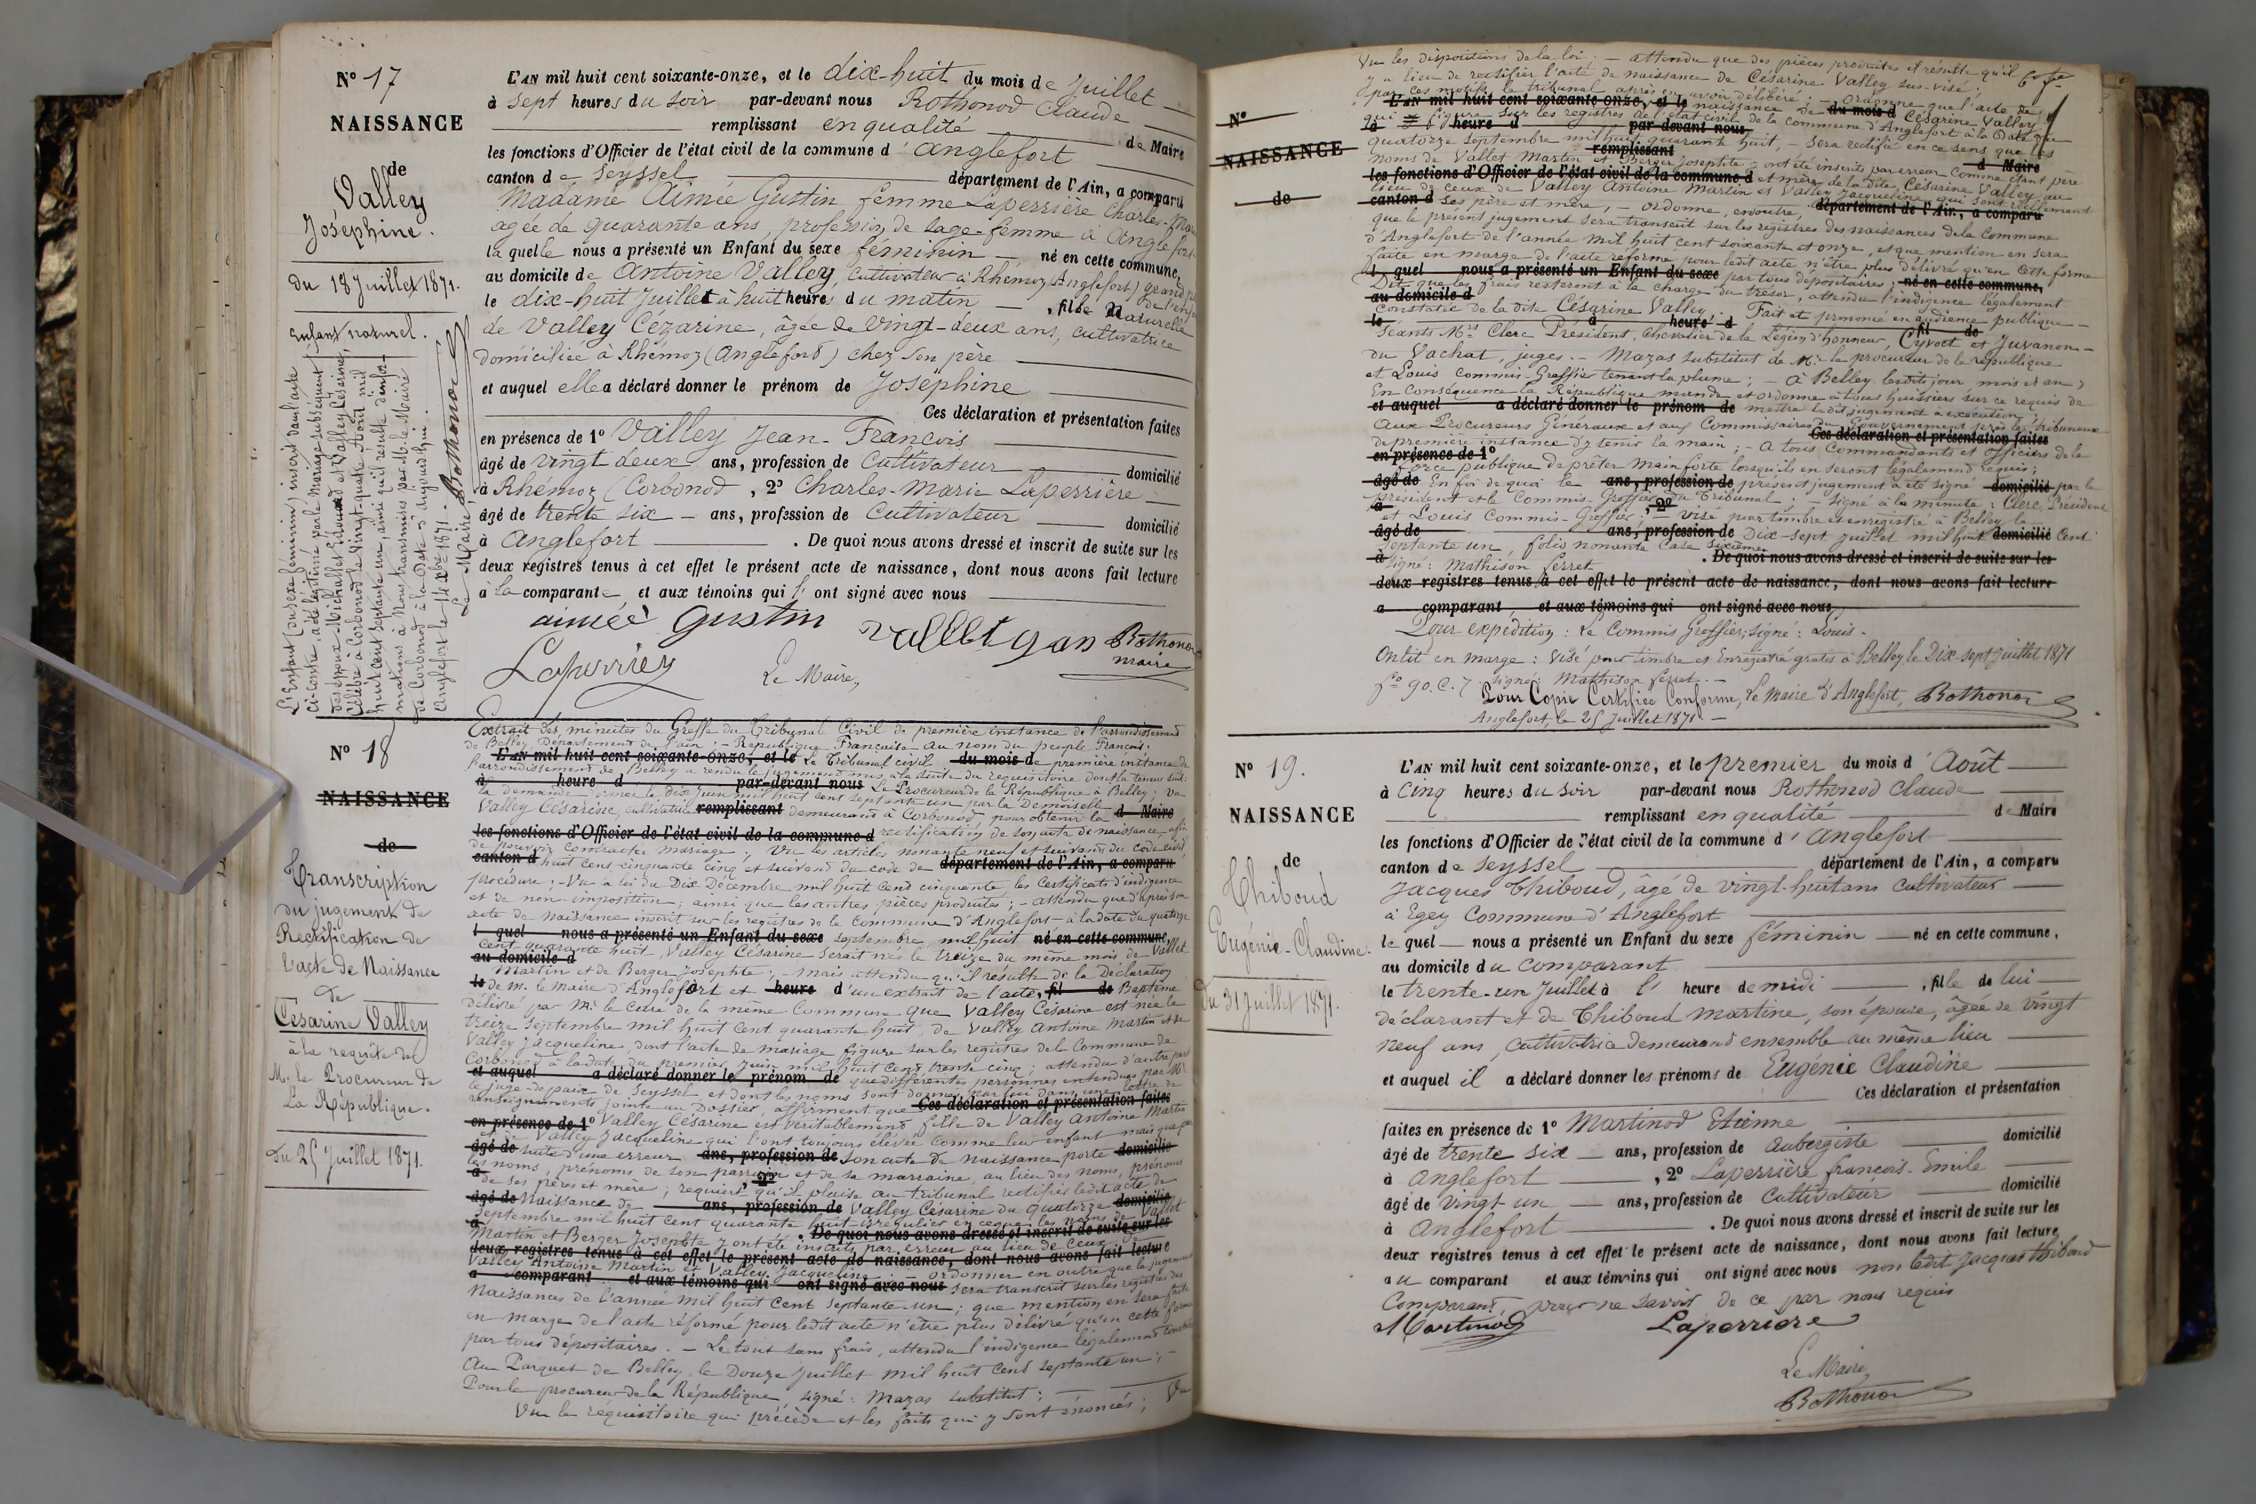 N° 17
NAISSANCE
de
Valley
Joséphine.
du 18 Juillet 1871.
Enfant naturel.
L'Enfant (du sexe féminin) inscrit dans l'acte
ci-contre, a été légitimé par le mariage subséquent
des époux Michallet Edouard et Valley Césarine,
Célébré à Corbonod le vingt-quatre Avril mil
huit cent septante un, ainsi qu'il résulte d'infor-
mations à Nous transmises par M. le Maire
de Corbonod à la date d'aujourd'hui.
Anglefort le 14 xbre 1871.
Le Maire Bothonod
L'AN mil huit cent soixante-onze, et le dix-huit du mois de Juillet
à sept heures du soir par-devant nous Rothonod Claude
remplissant en qualité de Maire
les fonctions d'Officier de l'état civil de la commune d'Anglefort
canton de Seyssel département de l'Ain, a comparu
Madame Aimée Gustin femme Laperrière Charles-Marie
agée de quarante ans, profession de sage-femme à Anglefort
laquelle nous a présenté un Enfant du sexe féminin né en cette commune,
au domicile de Antoine Valley, Cultivateur à Rhémoz (Anglefort) grand père de l'enfant
le dix-huit Juillet à huit heures du matin, fille Naturelle
de Valley Cézarine, âgée de vingt-deux ans, cultivatrice
domiciliée à Rhémoz (Anglefort) chez son père
et auquel elle a déclaré donner le prénom de Joséphine
Ces déclaration et présentation faites
en présence de 1° Valley Jean-François
âgé de vingt deux ans, profession de Cultivateur domicilié
à Rhémoz (Corbonod, 2° Charles-Marie Laperrière
âgé de trente six ans, profession de Cultivateur domicilié
à Anglefort. De quoi nous avons dressé et inscrit de suite sur les
deux registres tenus à cet effet le présent acte de naissance, dont nous avons fait lecture
à la comparante et aux témoins qui l' ont signé avec nous
aimée Gustin Vallet Jan Bothonod
maire
Laperrier Le Maire,
N° 18
NAISSANCE
de
Transcription
du jugement de
Rectification de
l'acte de Naissance
de
Césarine Valley
à la requête de
M. le Procureur de
La République.
du 25 Juillet 1871.
Extrait des minutes du Greffe du Tribunal Civil de première instance de l'arrondissement
de Belley Département de l'ain; - République Française au nom du peuple Français.
L'AN mil huit cent soixante-onze, et le Le Tribunal civil du mois de première instance de
l'arrondissement de Belley a rendu le jugement mis à la suite du requisitoire dont la teneur suit:
à heure d par-devant nous Le Procureur de la République à Belley; vu
la demande formée le dix Juin mil huit cent septante un par la Demoiselle
Valley Césarine, cultivatrice remplissant demeurant à Corbonod, pour obtenir la d Maire
les fonctions d'Officier de l'état civil de la commune d rectification de son acte de naissance afin
de pouvoir contracter mariage; Vu les articles nonante neuf et suivants du code civil
canton d huit cent cinquante cinq et suivants du code de département de l'Ain, a comparu
procédure; - Vu la loi du Dix Décembre mil huit cent cinquante, les certificats d'indigence
et de non-imposition; ainsi que les autres pièces produites; - attendu que d'après son
acte de naissance inscrit sur les registres de la Commune d'Anglefort à la date du quatorze
l quel nous a présenté un Enfant du sexe septembre mil huit né en cette commune
au domicile d cent quarante huit, Valley Césarine serait née le treize du même mois de Vallet
Martin et de Berger Josephte; - mais attendu qu'il résulte de la Déclaration
le de M. le Maire d'Anglefort et à heure d'un extrait de l'acte, fil de Baptême
délivré par Mr le Curé de la même Commune que Valley Césarine est née le
treize Septembre mil huit cent quarante huit, de Valley Antoine Martin et de
Valley Jacqueline, dont l'acte de mariage figure sur les registres de la Commune de
Corbonod à la date du premier Juin mil huit cent trente cinq; attendu d'autre part
et auquel a déclaré donner le prénom de que différentes personnes entendues par Mr
le juge-de-paix de Seyssel, et dont les noms sont donnés par lui dans une lettre de
renseignements jointe au Dossier, affirment que Ces déclaration et présentation faites
en présence de 1° Valley Césarine est véritablement fille de Valley Antoine Martin
et de Valley Jacqueline qui l'ont toujours élevée comme leur enfant mais que par
âgé de suite d'une erreur ans, profession de son acte de naissance porte domicilié
à les noms, prénoms de son parrain et de sa marraine, au lieu des noms, prénoms
de ses pères et mère; requiert qu'il plaise au tribunal rectifier ledit acte de
âgé de Naissance de ans, profession de Valley Césarine du quatorze domicilié
à Septembre mil huit cent quarante huit irrégulier en ce que les noms de Vallet
Martin et Berger Josephte y ont été inscrits par erreur au lieu de ceux de De quoi nous avons dressé et inscrit de suite sur les
deux registres tenus à cet effet le présent acte de naissance, dont nous avons fait lecture
Valley Antoine Martin et Valley Jacqueline; - ordonner en outre que le jugement
a comparant et aux témoins qui ont signé avec nous sera transcrit sur les registres des
Naissances de l'année mil huit cent septante-un; que mention en sera faite
en marge de l'acte réformé pour ledit acte n'être plus délivré qu'en cette forme
par tous dépositaires. - Le tout sans frais, attendu l'indigence légalement constatée
Au Parquet de Belley, le Douze Juillet mil huit cent septante un; -
Pour le procureur de la République, signé: Mazas substitut;
Vu le réquisitoire qui précède et les faits qui y sont énoncés; Vu
N°
NAISSANCE
de
Vu les dispositions de la loi; - attendu que des pièces produites il résulte qu'il
y a lieu de rectifier l'acte de naissance de Césarine Valley sus-visé;
par ces motifs le tribunal après en avoir délibéré; - ordonne que l'acte de
L'AN mil huit cent soixante-onze, et le naissance de du mois d Césarine Valley
qui figure sur les registres de l'état civil de la commune d'Anglefort à la date du
à heure d par-devant nous
quatorze septembre mil huit quarante huit, - sera rectifié en ce sens que les
remplissant d Maire
noms de Vallet Martin et Berger Josephte - ont été inscrits par erreur comme étant père
les fonctions d'Officier de l'état civil de la commune d et mère de la dite Césarine Valley, au
lieu de ceux de Valley Antoine Martin et Valley Jacqueline qui sont réellement
canton d ses père et mère, - ordonne, en outre, département de l'Ain, a comparu
que le présent jugement sera transcrit sur les registres des naissances de la Commune
d'Anglefort de l'année mil huit cent soixante et onze, et que mention en sera
faite en marge de l'acte réformé pour ledit acte n'être plus délivré qu'en cette forme
l quel nous a présenté un Enfant du sexe par tous dépositaires; né en cette commune,
Dit que les frais resteront à la charge du trésor, attendu l'indigence légalement
au domicile d
constatée de la dite Césarine Valley. Fait et prononcé en audience publique -
le à heure d fil de
Séants Mrs Clerc Président, chevalier de la Légion d'honneur, Cyvoct et Juvanon-
du Vachat, juges. - Mazas substitut de Mr le procureur de la république
et Louis commis-Greffier tenant la plume; - à Belley lesdits jour mois et an;
En conséquence la République mande et ordonne à tous huissiers sur ce requis de
et auquel a déclaré donner le prénom de mettre ledit jugement à exécution;
Aux Procureurs Généraux et aux Commissaires du Gouvernement près les tribunaux
Ces déclaration et présentation faites
de première instance d'y tenir la main; - A tous Commandants et officiers de la
en présence de 1°
force publique de prêter main forte lorsqu'ils en seront légalement requis;
âgé de En foi de quoi le ans, profession de présent jugement a été signé domicilié par le
président et le Commis-Greffier du Tribunal; - signé à la minute: Clerc, Président
à , 2°
et Louis Commis-Greffier; - visé pour timbre et enregistré à Belley le
âgé de ans, profession de Dix-sept juillet mil huit domicilié cent
septante un, folio nonante Case sixième
à . De quoi nous avons dressé et inscrit de suite sur les
Signé: Mathison Ferret
deux registres tenus à cet effet le présent acte de naissance, dont nous avons fait lecture
a comparant, et aux témoins qui ont signé avec nous
Pour expédition: Le Commis Greffier; signé: Louis.
On lit en marge: Visé pour timbre et Enregistré gratis à Belley le Dix-sept juillet 1871
f° 90. C. 7. signé: Mathison Ferret. -
Pour Copie Certifiée Conforme, le Maire d'Anglefort, Bothonod
Anglefort, le 25 Juillet 1871 -
N° 19.
NAISSANCE
de
Thiboud
Eugénie-Claudine.
Du 31 Juillet 1871.
L'AN mil huit cent soixante-onze, et le premier du mois d'Août
à Cinq heures du soir par-devant nous Rothonod Claude
remplissant en qualité de Maire
les fonctions d'Officier de l'état civil de la commune d'Anglefort
canton de Seyssel département de l'Ain, a comparu
Jacques Thiboud, âgé de vingt-huit ans cultivateur
à Egey Commune d'Anglefort
lequel nous a présenté un Enfant du sexe féminin né en cette commune,
au domicile du comparant
le trente-un Juillet à l' heure de midi, fille de lui
déclarant et de Thiboud Martine, son épouse, âgée de vingt
neuf ans, cultivatrice demeurant ensemble au même lieu
et auquel il a déclaré donner les prénoms de Eugénie Claudine
Ces déclaration et présentation
faites en présence de 1° Martinod Etienne
âgé de trente six ans, profession de Aubergiste domicilié
à Anglefort, 2° Laperrière françois-Emile
âgé de vingt un ans, profession de Cultivateur domicilié
à Anglefort. De quoi nous avons dressé et inscrit de suite sur les
deux registres tenus à cet effet le présent acte de naissance, dont nous avons fait lecture
au comparant et aux témoins qui ont signé avec nous non ledit Jacques Thiboud
Comparant, pour ne savoir de ce par nous requis
Martinod Laperriere
Le Maire,
Bothonod